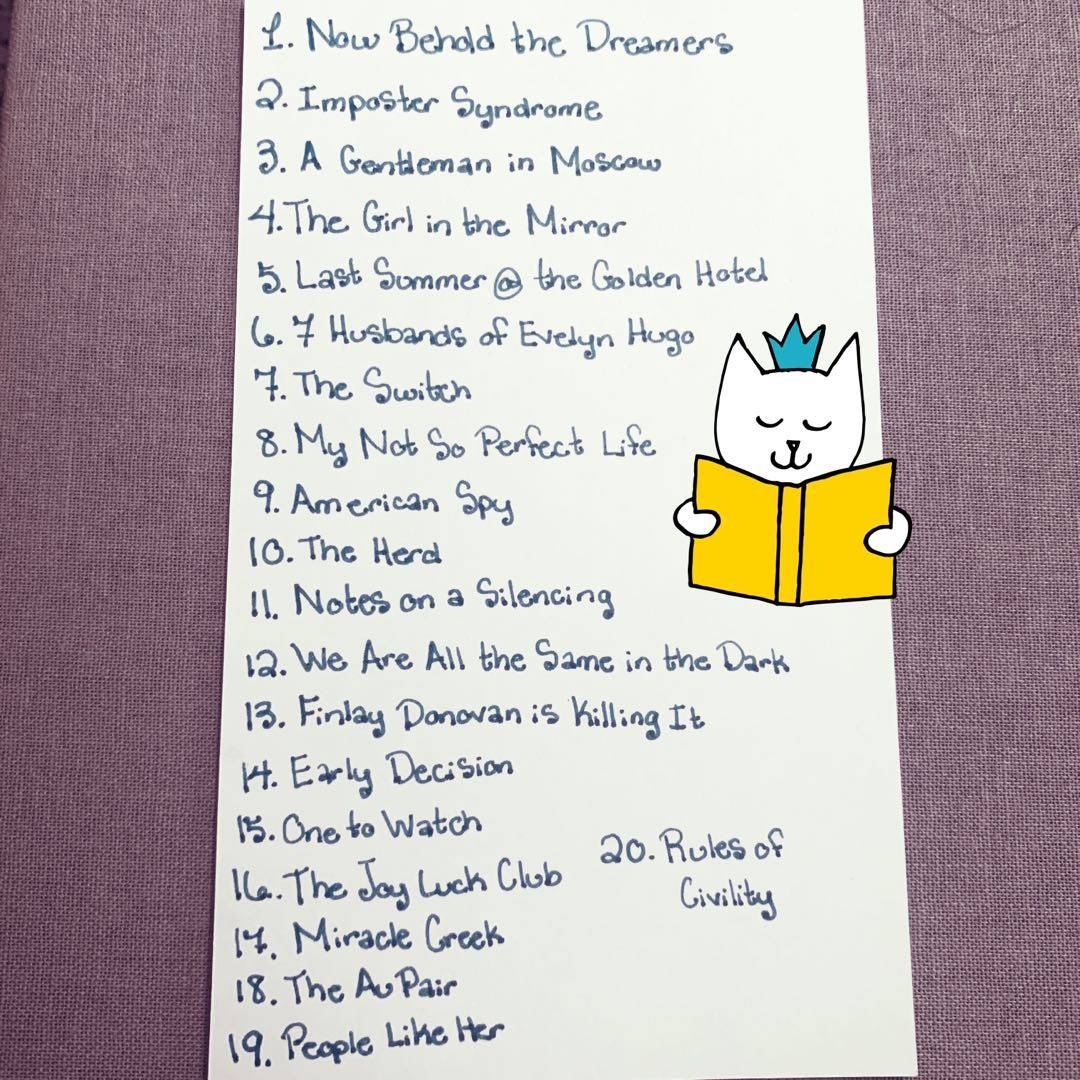 1. Now Behold the Dreamers
2. Imposter Syndrome
3. A Gentleman in Moscow
4. The Girl in the Mirror
5. Last Summer @ the Golden Hotel
6. 7 Husbands of Evelyn Hugo
7. The Switch
8. My Not So Perfect Life
9. American Spy
10. The Herd
11. Notes on a Silencing
12. We Are All the Same in the Dark
13. Finlay Donovan is Killing It
14. Early Decision
15. One to Watch
16. The Joy Luck Club
17. Miracle Creek
18. The Au Pair
19. People Like Her
20. Rules of
Civility